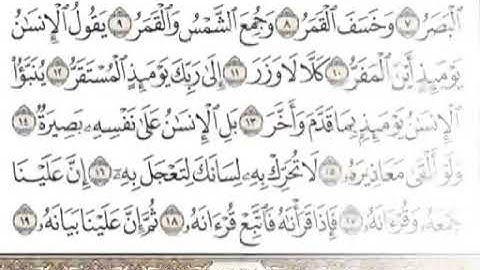 ٱلْبَصَرُ ٧ وَخَسَفَ ٱلْقَمَرُ ٨ وَجُمِعَ ٱلشَّمْسُ وَٱلْقَمَرُ ٩ يَقُولُ ٱلْإِنسَٰنُ
يَوْمَئِذٍ أَيْنَ ٱلْمَفَرُّ ١٠ كَلَّا لَا وَزَرَ ١١ إِلَىٰ رَبِّكَ يَوْمَئِذٍ ٱلْمُسْتَقَرُّ ١٢ يُنَبَّؤُا۟
ٱلْإِنسَٰنُ يَوْمَئِذٍۭ بِمَا قَدَّمَ وَأَخَّرَ ١٣ بَلِ ٱلْإِنسَٰنُ عَلَىٰ نَفْسِهِۦ بَصِيرَةٌ ١٤
وَلَوْ أَلْقَىٰ مَعَاذِيرَهُۥ ١٥ لَا تُحَرِّكْ بِهِۦ لِسَانَكَ لِتَعْجَلَ بِهِۦٓ ١٦ إِنَّ عَلَيْنَا
جَمْعَهُۥ وَقُرْءَانَهُۥ ١٧ فَإِذَا قَرَأْنَٰهُ فَٱتَّبِعْ قُرْءَانَهُۥ ١٨ ثُمَّ إِنَّ عَلَيْنَا بَيَانَهُۥ ١٩